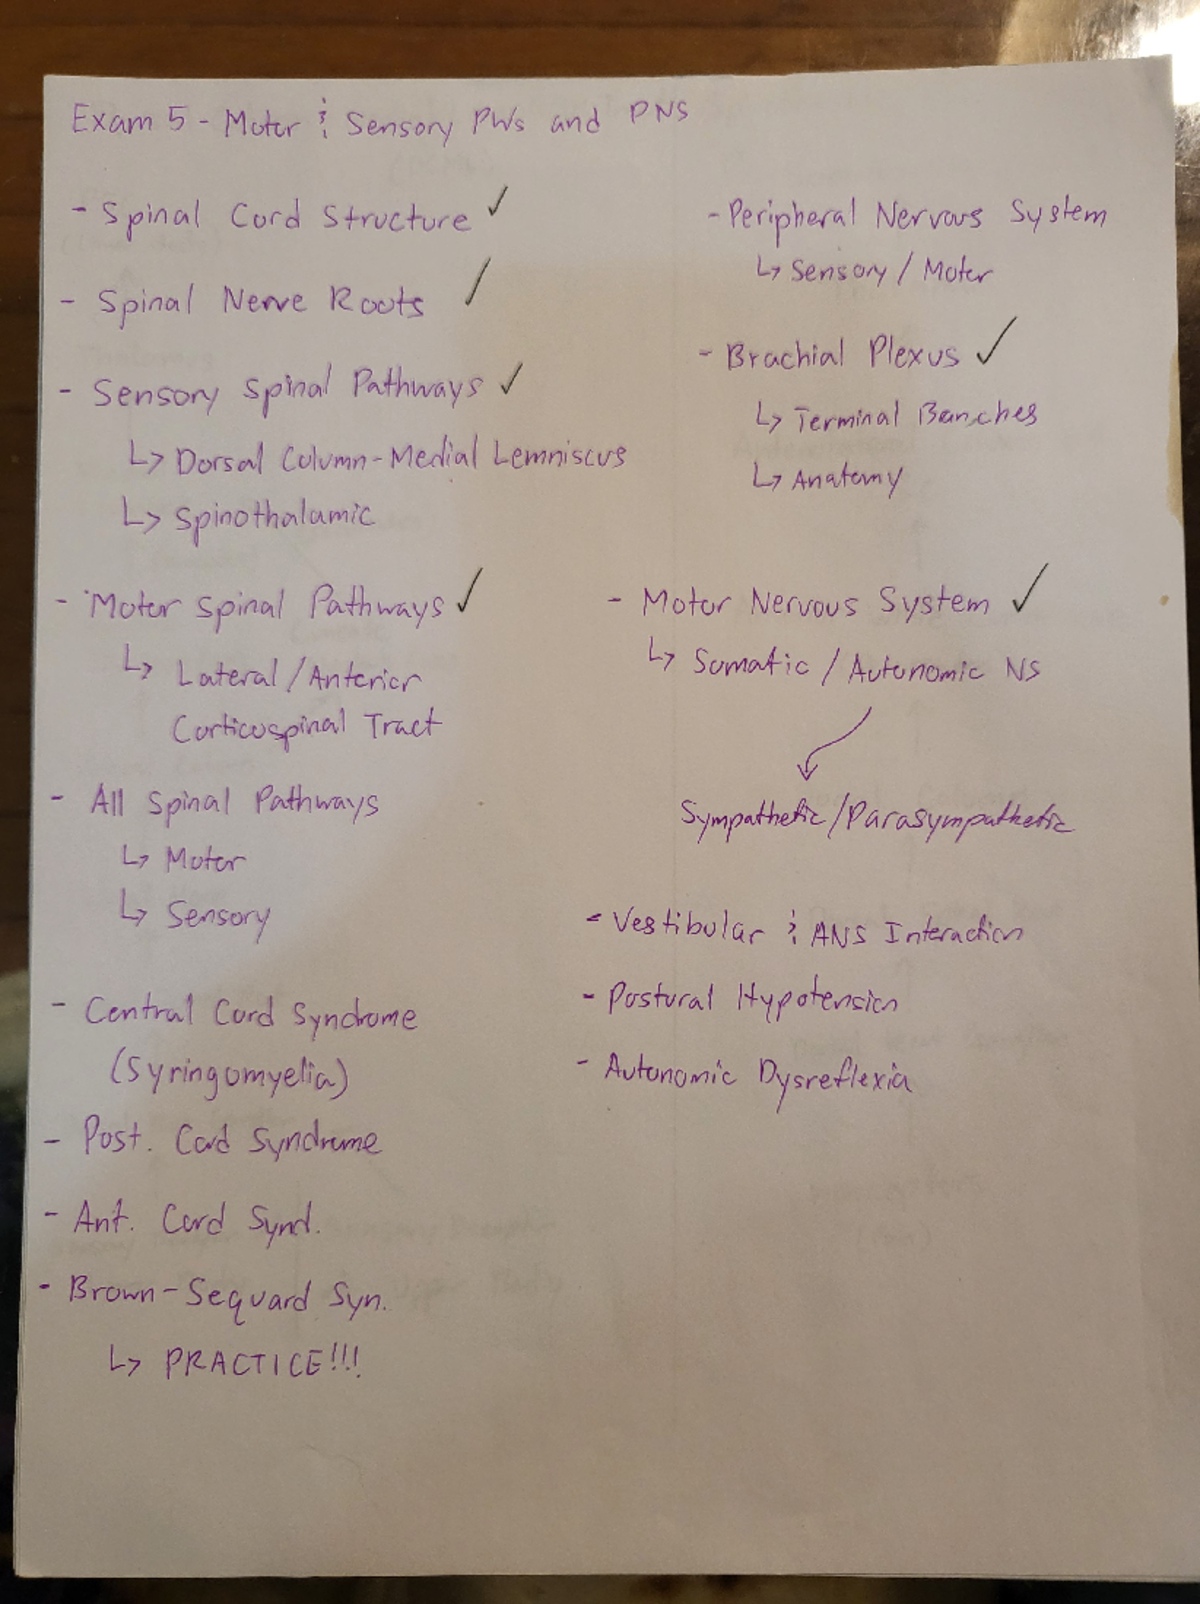 Exam 5 - Motor & Sensory PWs and PNS
- Spinal Cord Structure ✓
- Spinal Nerve Roots ✓
- Sensory Spinal Pathways ✓
↳ Dorsal Column-Medial Lemniscus
↳ Spinothalamic
- Motor Spinal Pathways ✓
↳ Lateral/Anterior
Corticospinal Tract
- All Spinal Pathways
↳ Motor
↳ Sensory
- Central Cord Syndrome
(Syringomyelia)
- Post. Cord Syndrome
- Ant. Cord Synd.
- Brown-Sequard Syn.
↳ PRACTICE!!!
- Peripheral Nervous System
↳ Sensory/Motor
- Brachial Plexus ✓
↳ Terminal Banches
↳ Anatomy
- Motor Nervous System ✓
↳ Somatic/Autonomic NS
Sympathetic/Parasympathetic
- Vestibular & ANS Interaction
- Postural Hypotension
- Autonomic Dysreflexia